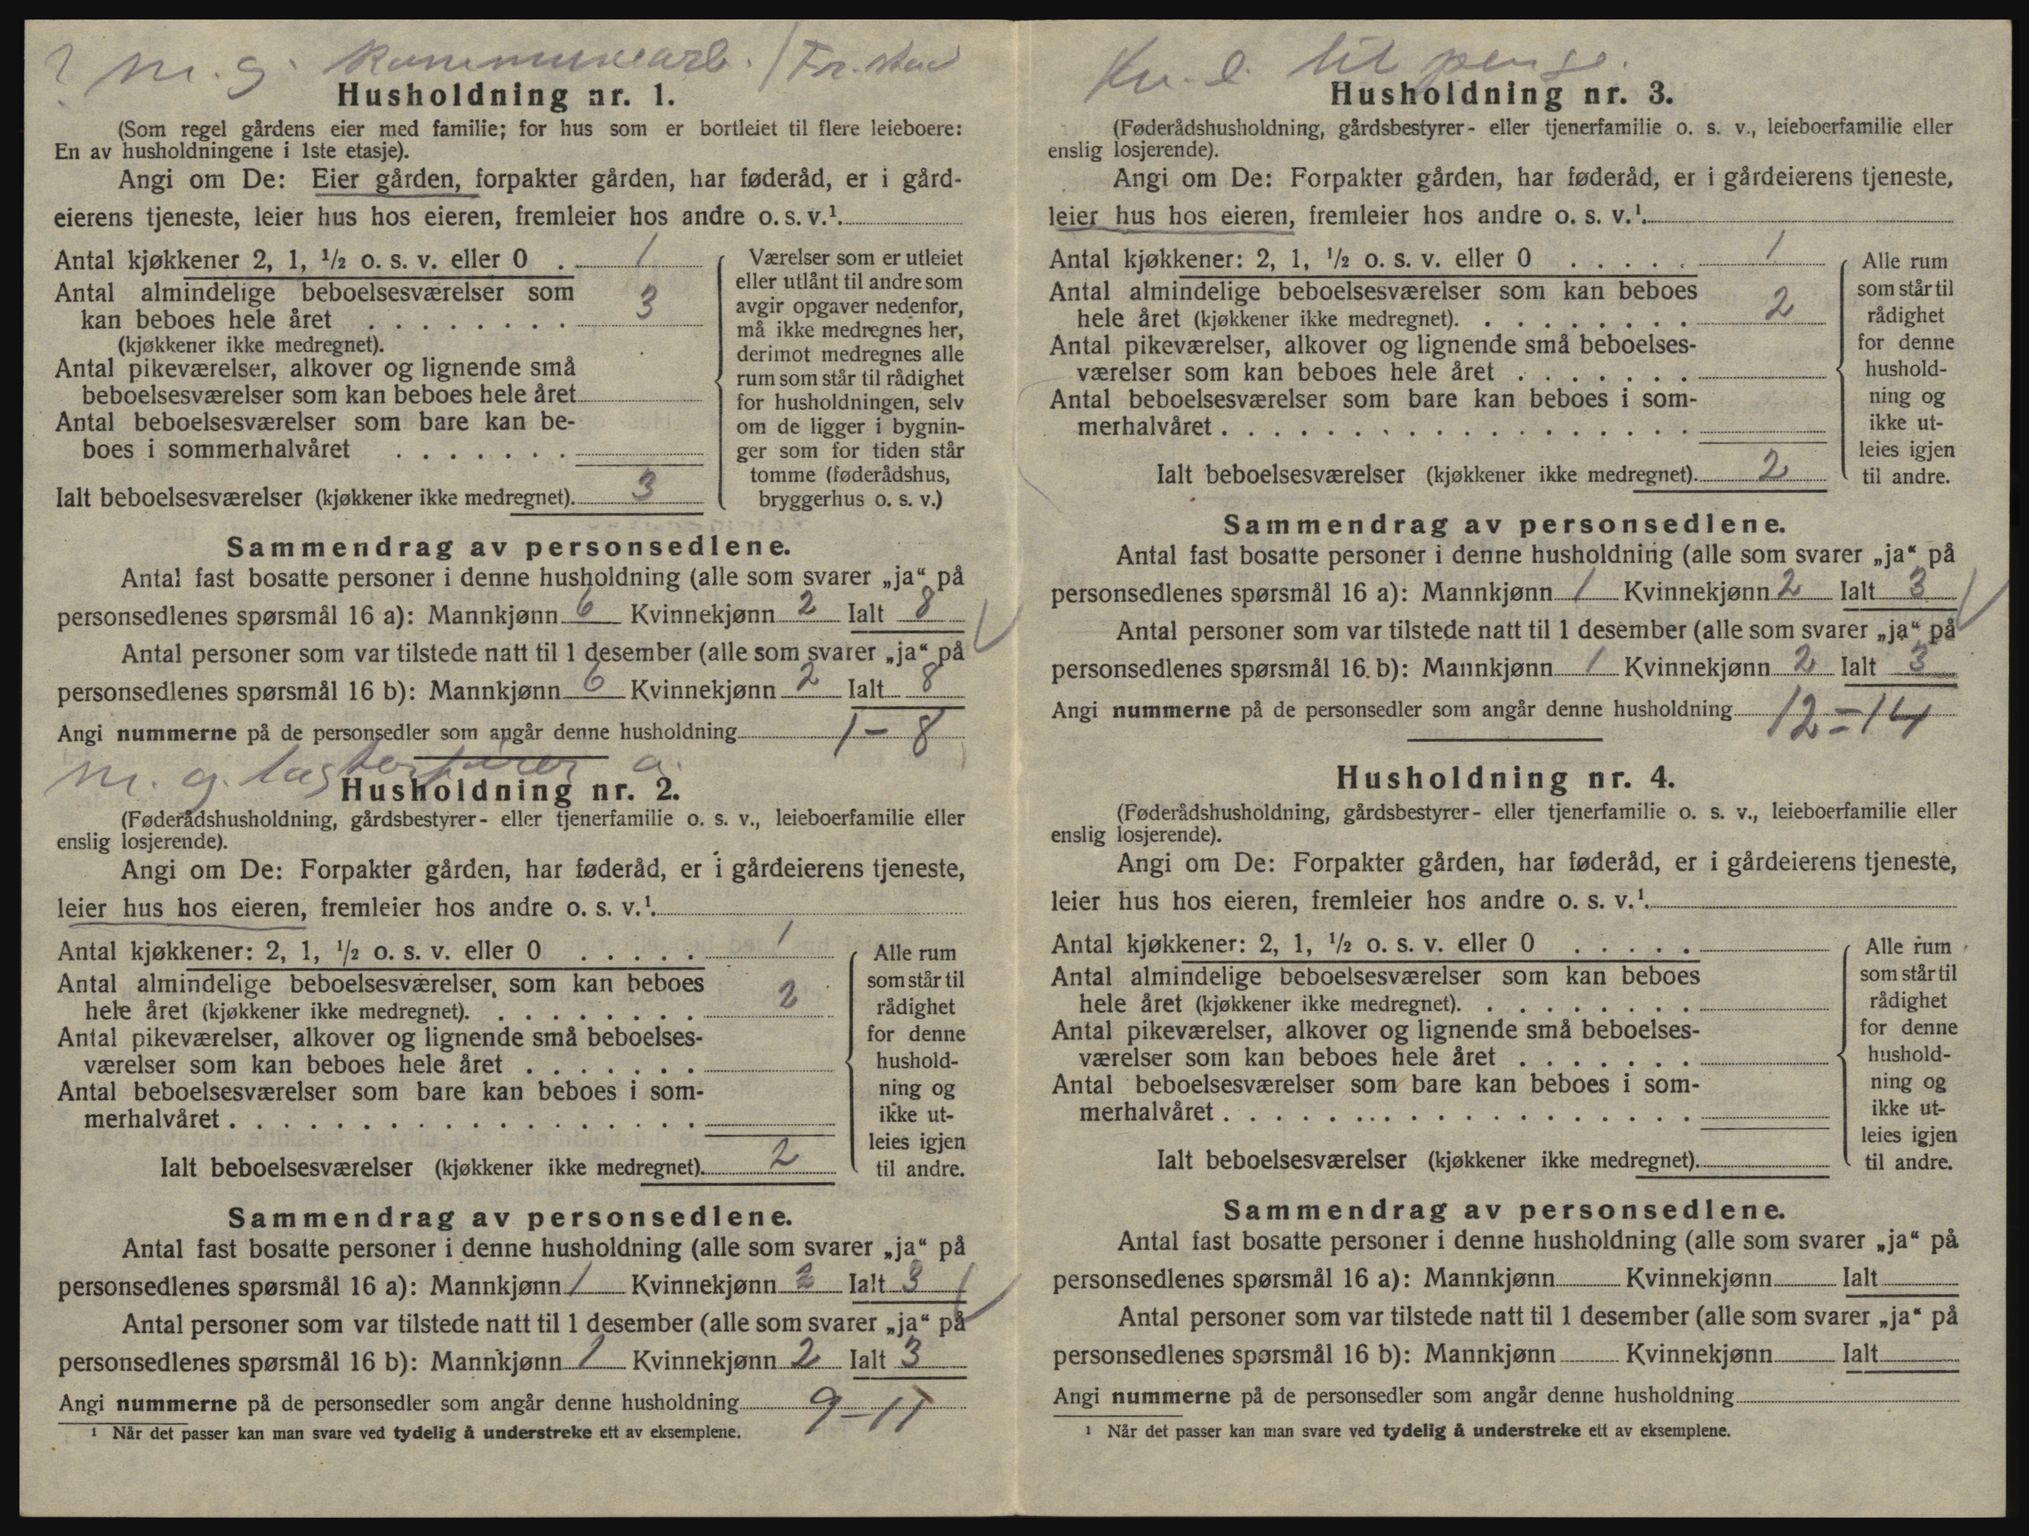 ? m. g. kommunearb. / Fr.stad
Husholdning nr. 1.
(Som regel gårdens eier med familie; for hus som er bortleiet til flere leieboere:
En av husholdningene i 1ste etasje).
Angi om De: Eier gården, forpakter gården, har føderåd, er i gård-
eierens tjeneste, leier hus hos eieren, fremleier hos andre o. s. v.¹.
Antal kjøkkener 2, 1, ½ o. s. v. eller 0 . 1
Antal almindelige beboelsesværelser som
kan beboes hele året . . . . . . . . 3
(kjøkkener ikke medregnet).
Antal pikeværelser, alkover og lignende små
beboelsesværelser som kan beboes hele året
Antal beboelsesværelser som bare kan be-
boes i sommerhalvåret . . . . . . .
Ialt beboelsesværelser (kjøkkener ikke medregnet). 3
Værelser som er utleiet
eller utlånt til andre som
avgir opgaver nedenfor,
må ikke medregnes her,
derimot medregnes alle
rum som står til rådighet
for husholdningen, selv
om de ligger i bygnin-
ger som for tiden står
tomme (føderådshus,
bryggerhus o. s. v.)
Sammendrag av personsedlene.
Antal fast bosatte personer i denne husholdning (alle som svarer „ja“ på
personsedlenes spørsmål 16 a): Mannkjønn 6 Kvinnekjønn 2 Ialt 8
Antal personer som var tilstede natt til 1 desember (alle som svarer „ja“ på
personsedlenes spørsmål 16 b): Mannkjønn 6 Kvinnekjønn 2 Ialt 8
Angi nummerne på de personsedler som angår denne husholdning 1-8
m. g. a.
Husholdning nr. 2.
(Føderådshusholdning, gårdsbestyrer- eller tjenerfamilie o. s. v., leieboerfamilie eller
enslig losjerende).
Angi om De: Forpakter gården, har føderåd, er i gårdeierens tjeneste,
leier hus hos eieren, fremleier hos andre o. s. v.¹.
Antal kjøkkener: 2, 1, ½ o. s. v. eller 0 . . . . . 1
Antal almindelige beboelsesværelser som kan beboes
hele året (kjøkkener ikke medregnet). . . . . . . . . 2
Antal pikeværelser, alkover og lignende små beboelses-
værelser som kan beboes hele året . . . . . . .
Antal beboelsesværelser som bare kan beboes i som-
merhalvåret . . . . . . . . . . . . . . . . . .
Ialt beboelsesværelser (kjøkkener ikke medregnet). 2
Alle rum
som står til
rådighet
for denne
hushold-
ning og
ikke ut-
leies igjen
til andre.
Sammendrag av personsedlene.
Antal fast bosatte personer i denne husholdning (alle som svarer „ja“ på
personsedlenes spørsmål 16 a): Mannkjønn 1 Kvinnekjønn 2 Ialt 3
Antal personer som var tilstede natt til 1 desember (alle som svarer „ja“ på
personsedlenes spørsmål 16 b): Mannkjønn 1 Kvinnekjønn 2 Ialt 3
Angi nummerne på de personsedler som angår denne husholdning 9-11
¹ Når det passer kan man svare ved tydelig å understreke ett av eksemplene.
Kv. e. til penge.
Husholdning nr. 3.
(Føderådshusholdning, gårdsbestyrer- eller tjenerfamilie o. s. v., leieboerfamilie eller
enslig losjerende).
Angi om De: Forpakter gården, har føderåd, er i gårdeierens tjeneste,
leier hus hos eieren, fremleier hos andre o. s. v.¹.
Antal kjøkkener: 2, 1, ½ o. s. v. eller 0 . . . . . 1
Antal almindelige beboelsesværelser som kan beboes
hele året (kjøkkener ikke medregnet). . . . . . . . . 2
Antal pikeværelser, alkover og lignende små beboelses-
værelser som kan beboes hele året . . . . . . .
Antal beboelsesværelser som bare kan beboes i som-
merhalvåret . . . . . . . . . . . . . . . . . .
Ialt beboelsesværelser (kjøkkener ikke medregnet). 2
Alle rum
som står til
rådighet
for denne
hushold-
ning og
ikke ut-
leies igjen
til andre.
Sammendrag av personsedlene.
Antal fast bosatte personer i denne husholdning (alle som svarer „ja“ på
personsedlenes spørsmål 16 a): Mannkjønn 1 Kvinnekjønn 2 Ialt 3
Antal personer som var tilstede natt til 1 desember (alle som svarer „ja“ på
personsedlenes spørsmål 16 b): Mannkjønn 1 Kvinnekjønn 2 Ialt 3
Angi nummerne på de personsedler som angår denne husholdning 12-14
Husholdning nr. 4.
(Føderådshusholdning, gårdsbestyrer- eller tjenerfamilie o. s. v., leieboerfamilie eller
enslig losjerende).
Angi om De: Forpakter gården, har føderåd, er i gårdeierens tjeneste,
leier hus hos eieren, fremleier hos andre o. s. v.¹.
Antal kjøkkener: 2, 1, ½ o. s. v. eller 0 . . . . .
Antal almindelige beboelsesværelser som kan beboes
hele året (kjøkkener ikke medregnet). . . . . . . . .
Antal pikeværelser, alkover og lignende små beboelses-
værelser som kan beboes hele året . . . . . . .
Antal beboelsesværelser som bare kan beboes i som-
merhalvåret . . . . . . . . . . . . . . . . . .
Ialt beboelsesværelser (kjøkkener ikke medregnet).
Alle rum
som står til
rådighet
for denne
hushold-
ning og
ikke ut-
leies igjen
til andre.
Sammendrag av personsedlene.
Antal fast bosatte personer i denne husholdning (alle som svarer „ja“ på
personsedlenes spørsmål 16 a): Mannkjønn Kvinnekjønn Ialt
Antal personer som var tilstede natt til 1 desember (alle som svarer „ja“ på
personsedlenes spørsmål 16 b): Mannkjønn Kvinnekjønn Ialt
Angi nummerne på de personsedler som angår denne husholdning
¹ Når det passer kan man svare ved tydelig å understreke ett av eksemplene.